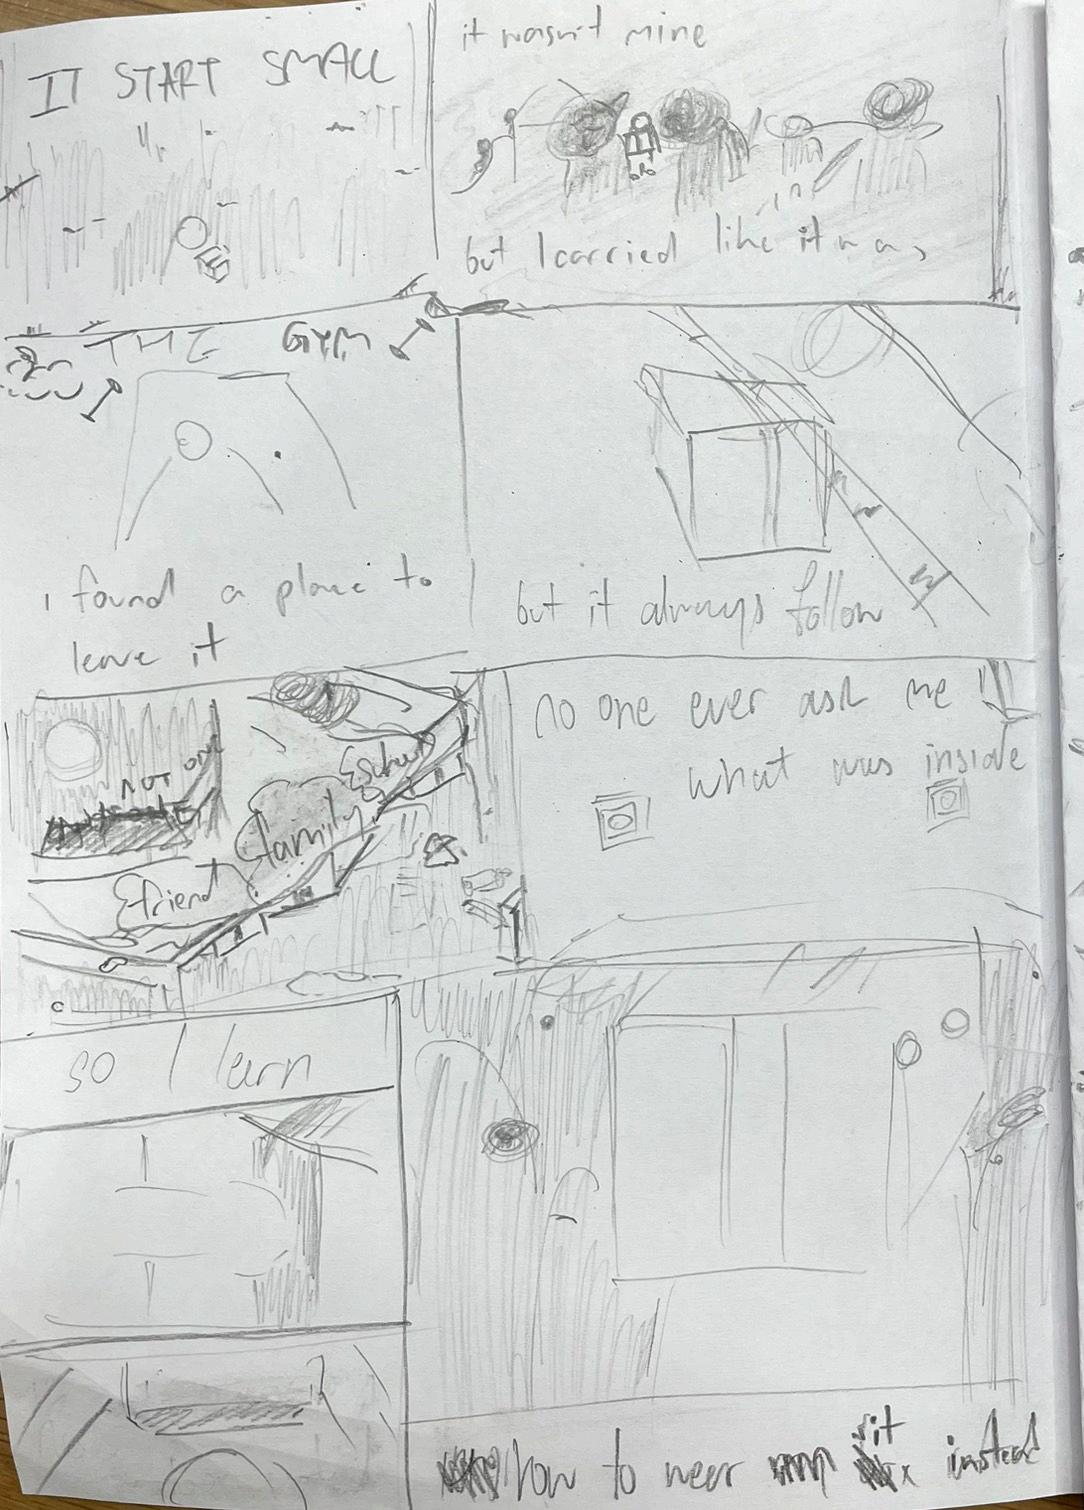 IT START SMALL
it wasn't mine
but I carried like it was
THE GYM
I found a place to
leave it
but it always follow
NOT ONE
school
family
friend
no one ever ask me
what was inside
so I learn
how to wear it instead